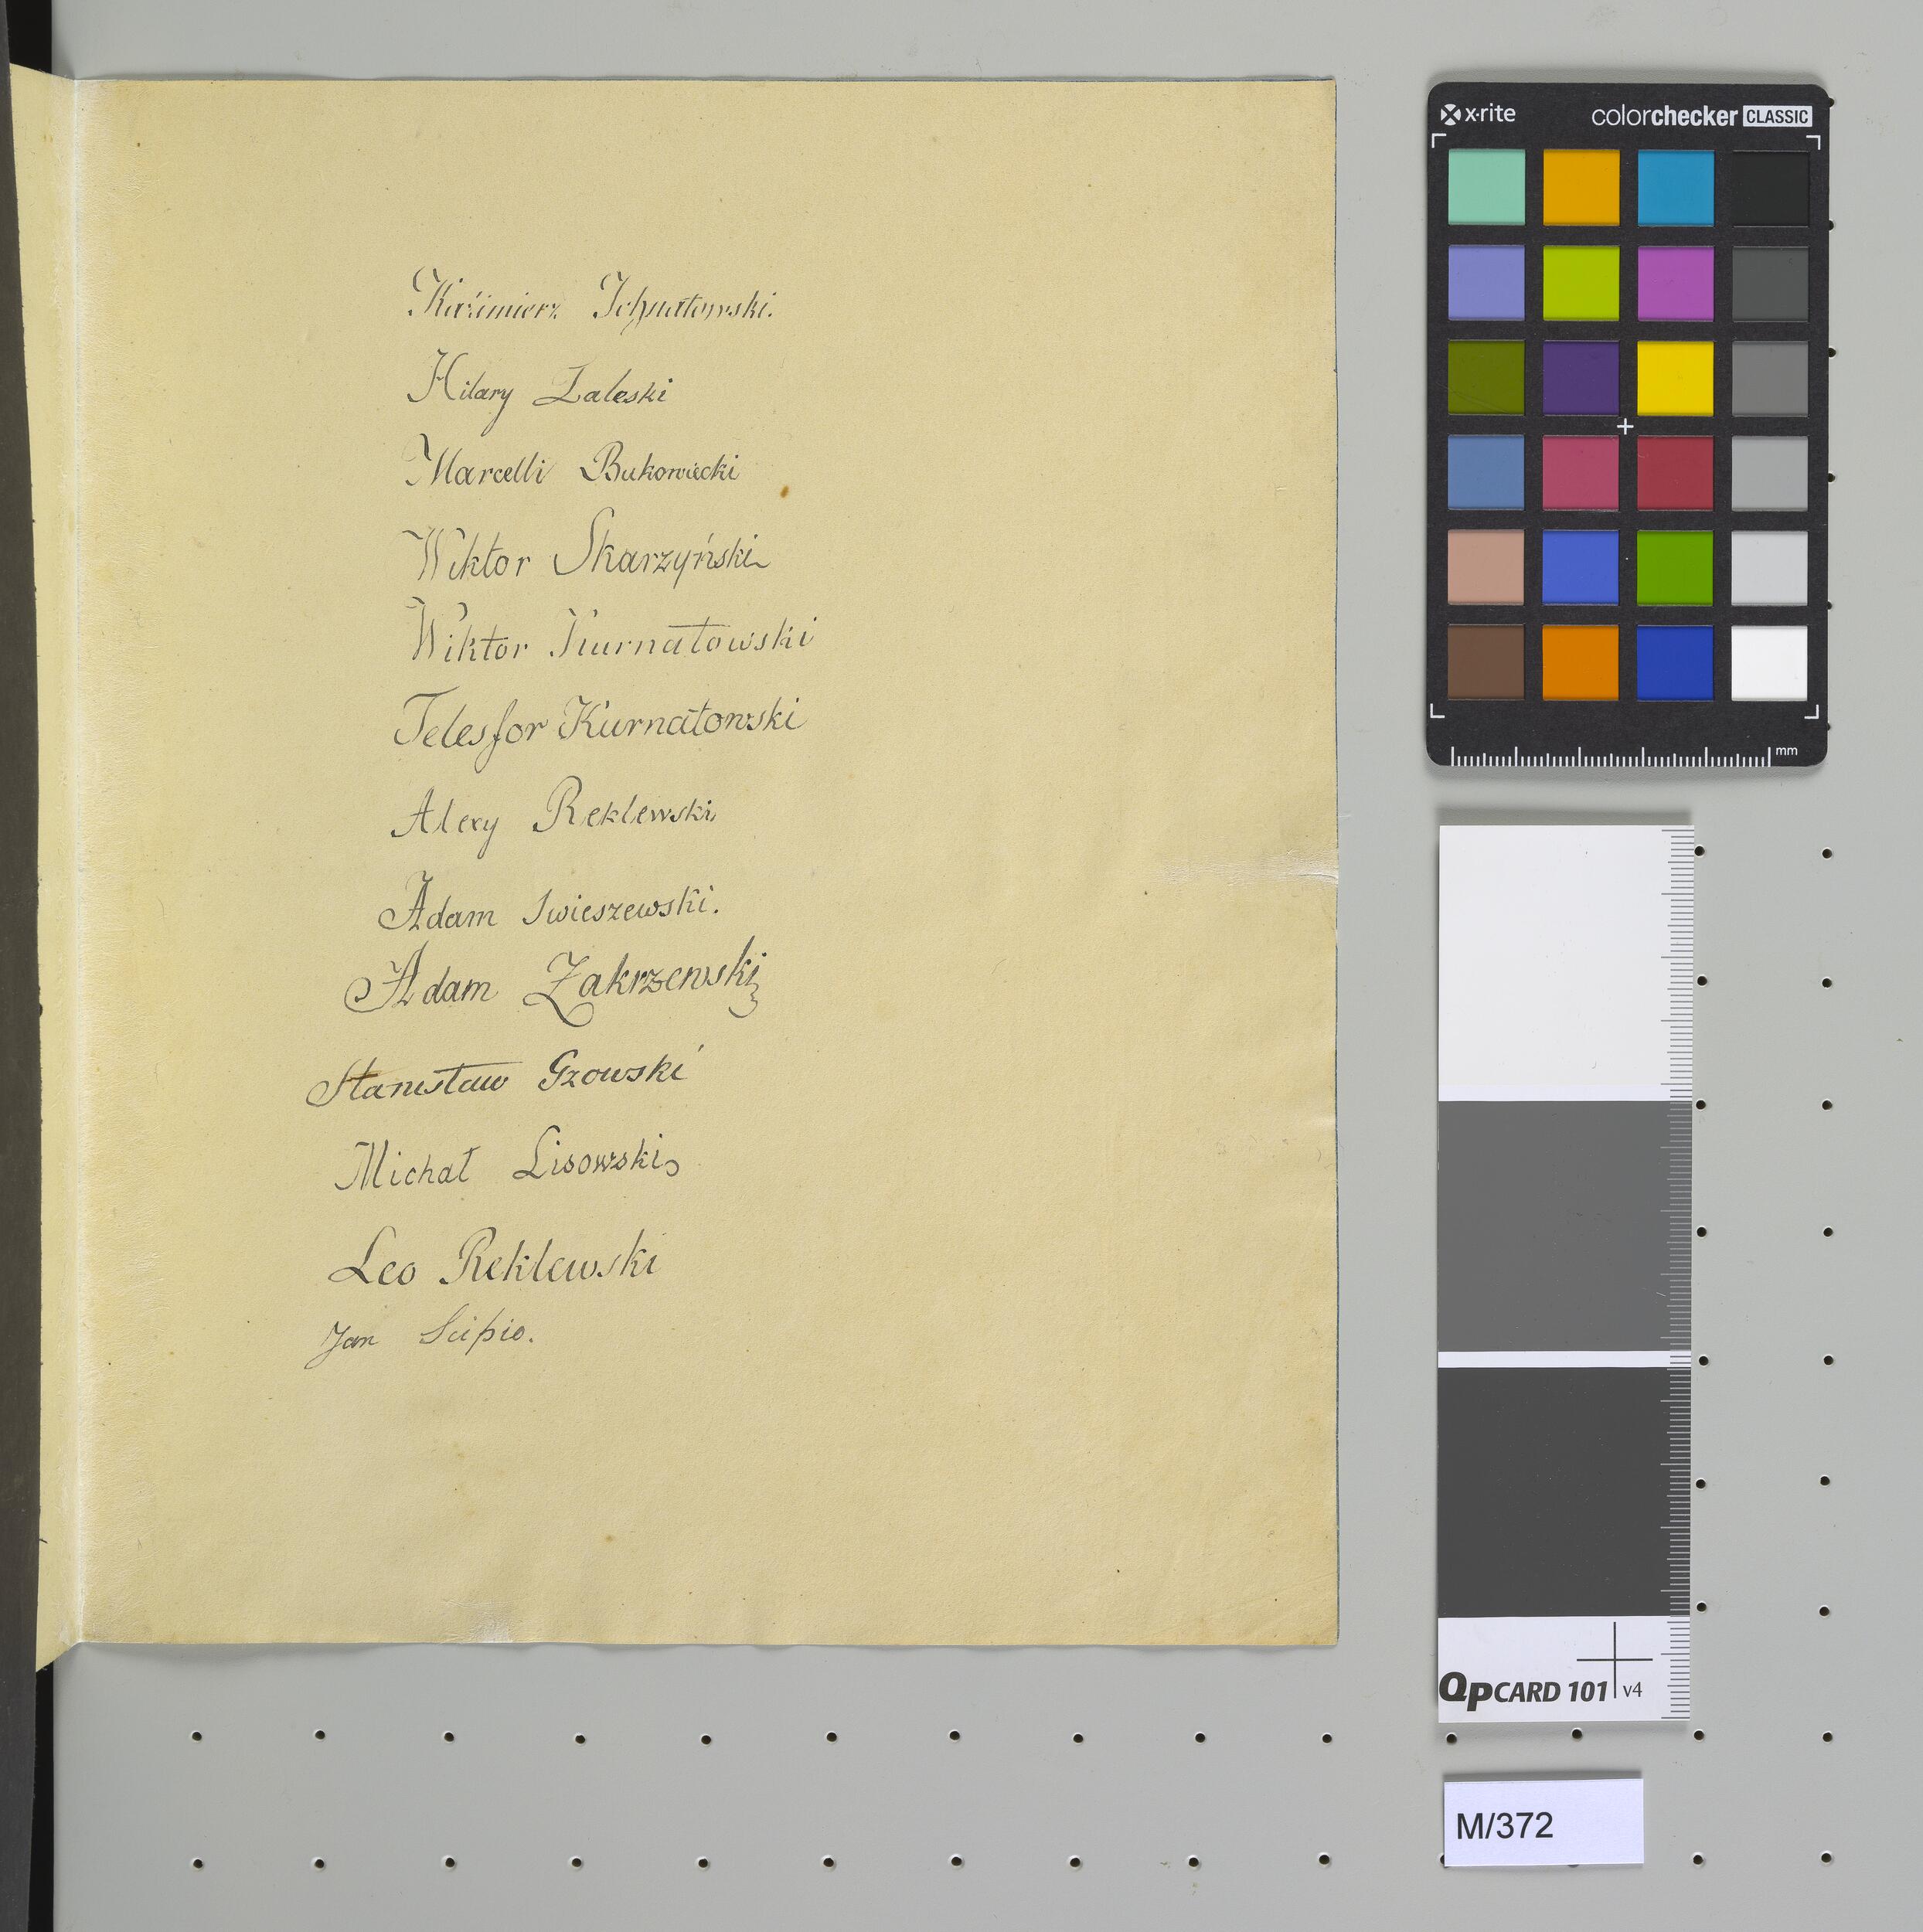 Kaźimierz Ichnatowski.
Hilary Zaleski
Marcelli Bukowiecki
Wiktor Skarzyński
Wiktor Kurnatowski
Telesfor Kurnatowski
Alexy Reklewski
Adam Swieszewski.
Adam Zakrzewski
Stanisław Gzowski
Michał Lisowski
Leo Reklewski
Jan Scipio.
x·rite colorchecker CLASSIC
mm
QPCARD 101 v4
M/372